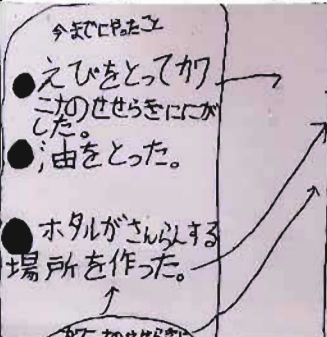 今までにやったこと
●えびをとってカワ
ニナのせせらぎににが
した。
●油をとった。
●ホタルがさんらんする
場所を作った。
カワニナのせせらぎに